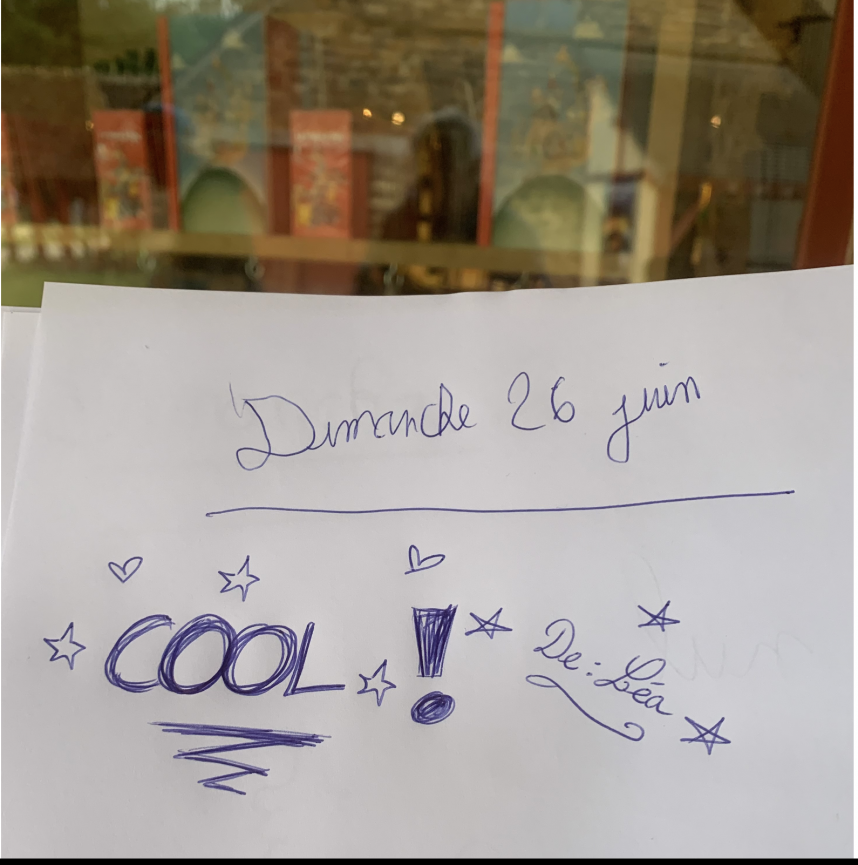 Dimanche 26 juin
COOL !
De : Léa